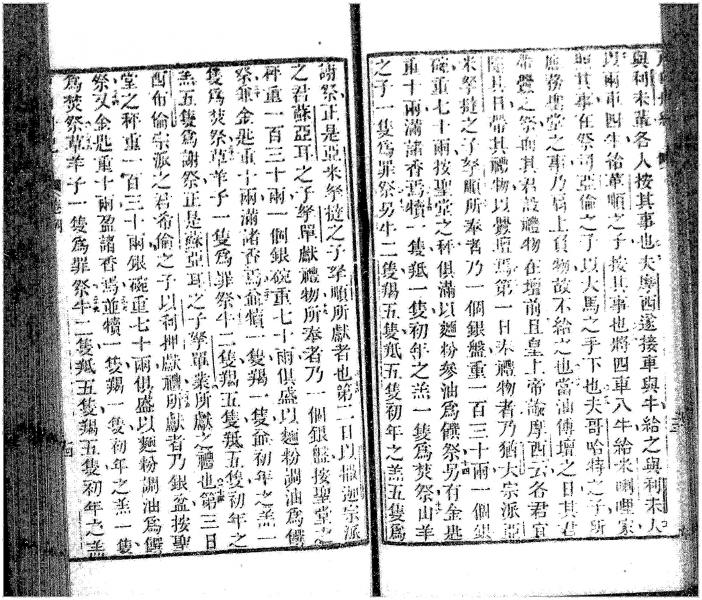 與利未輩各人按其事也夫摩西遂接車與牛給之與利未人
以兩車四牛給革順之子按其事也將四車八牛給米喇哩家
照其事在祭司亞倫之子以大馬之手下也夫哥哈特之子所
務聖堂之事乃肩上負物故不給之也當油傅壇之日其君
獻釁之祭即其君設禮物在壇前且皇上帝諭摩西云各君宜
其日帶其禮物以釁壇焉第一日奉禮物者乃猶大宗派亞
米拏撻之子拏順所奉者乃一個銀盤重一百三十兩一個銀
碗重七十兩按聖堂之秤俱滿以麵粉參油為饌祭另有金匙
重十兩滿諸香焉犢一隻羝一隻初年之羔一隻為焚祭山羊
之子一隻為罪祭另牛二隻羯五隻羝五隻初年之羔五隻為
謝祭正是亞米拏撻之子拏順所獻者也第二日以撒迦宗派
之君蘇亞耳之子拏單獻禮物所奉者乃一個銀盤按聖堂之
秤重一百三十兩一個銀碗重七十兩俱盛以麵粉調油為饌
祭兼金匙重十兩滿諸香焉並犢一隻羯一隻初年之羔一
隻為焚祭草羊子一隻為罪祭牛二隻羯五隻羝五隻初年之
羔五隻為謝祭正是蘇亞耳之子拏單業所獻之禮也第三日
西布倫宗派之君希倫之子以利押獻禮所獻者乃銀盆按聖
堂之秤重一百三十兩銀碗重七十兩俱盛以麵粉調油為饌
祭又金匙重十兩盈諸香焉並犢一隻羯一隻初年之羔一隻
為焚祭草羊子一隻為罪祭牛二隻羝五隻羯五隻初年之羔